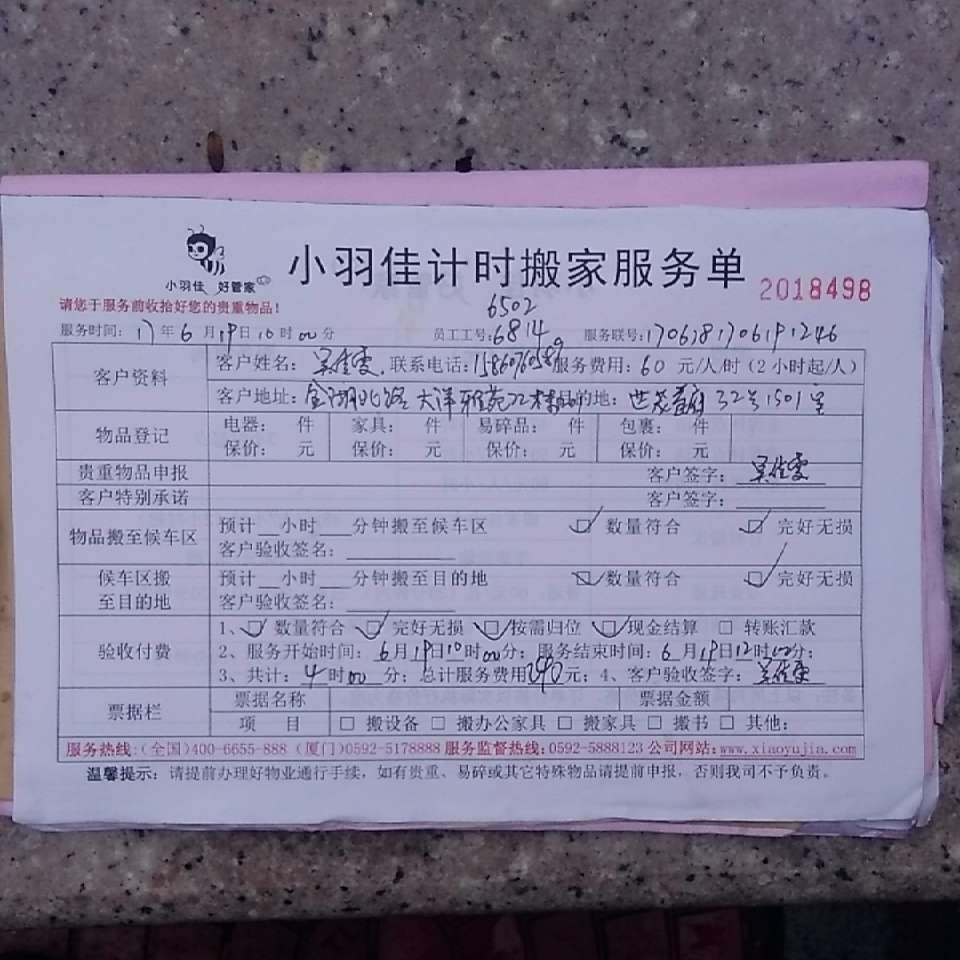 小羽佳 好管家
小羽佳计时搬家服务单
2018498
请您于服务前收拾好您的贵重物品！
6502
服务时间：17年6月19日10时00分 员工工号：6814 服务联号：1706381706191246
客户资料
客户姓名： 联系电话： 服务费用：60 元/人/时（2小时起/人）
客户地址：金湖北路 大洋雅苑22 目的地：世茂 32号1501室
物品登记
电器： 件 家具： 件 易碎品： 件 包裹： 件
保价： 元 保价： 元 保价： 元 保价： 元
贵重物品申报 客户签字：
客户特别承诺 客户签字：
物品搬至候车区
预计__小时___分钟搬至候车区 数量符合 完好无损
客户验收签名：
候车区搬至目的地
预计__小时___分钟搬至目的地 数量符合 完好无损
客户验收签名：
验收付费
1、 数量符合 完好无损 按需归位 现金结算 转账汇款
2、服务开始时间：6月19日10时00分；服务结束时间：6月19日12时00分；
3、共计：4时00分；总计服务费用240元；4、客户验收签字：
票据栏
票据名称 票据金额
项 目 搬设备 搬办公家具 搬家具 搬书 其他：
服务热线：（全国）400-6655-888（厦门）0592-5178888 服务监督热线：0592-5888123 公司网站：www.xiaoyujia.com
温馨提示：请提前办理好物业通行手续，如有贵重、易碎或其它特殊物品请提前申报，否则我司不予负责。